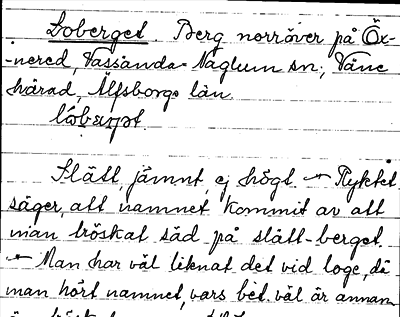 Loberget. Berg norröver på Öx-
-nered, Vassända-Naglum sn., Väne
härad, Älfsborgs län.
Slätt, jämnt, ej högt. — Ryktet
säger, att namnet kommit av att
man tröskat säd på slätt-berget.
— Man har väl liknat det vid loge, då
man hört namnet, vars bet. väl är annan